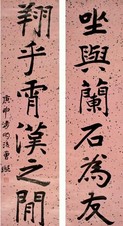 坐與蘭石為友
翔乎霄漢之間